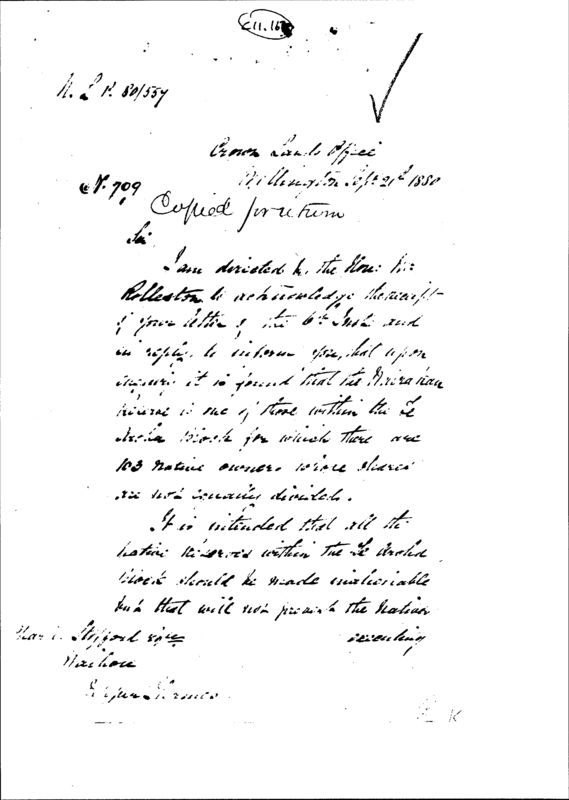 E11.16
N. L. P. 80/557
Crown Lands Office
Wellington Sept. 21st 1880
No. 709
Copied for return
Sir
I am directed by the Hon: Mr
Rolleston to acknowledge the receipt
of your letter of the 6th Inst. and
in reply to inform you, that upon
inquiry it is found that the
Reserve is one of those within the Te
Aroha Block for which there are
103 native owners whose shares
are not equally divided.
It is intended that all the
native Reserves within the Te Aroha
Block should be made inalienable
but that will not prevent the Natives
Stafford Esqre executing
Waihou
Thames